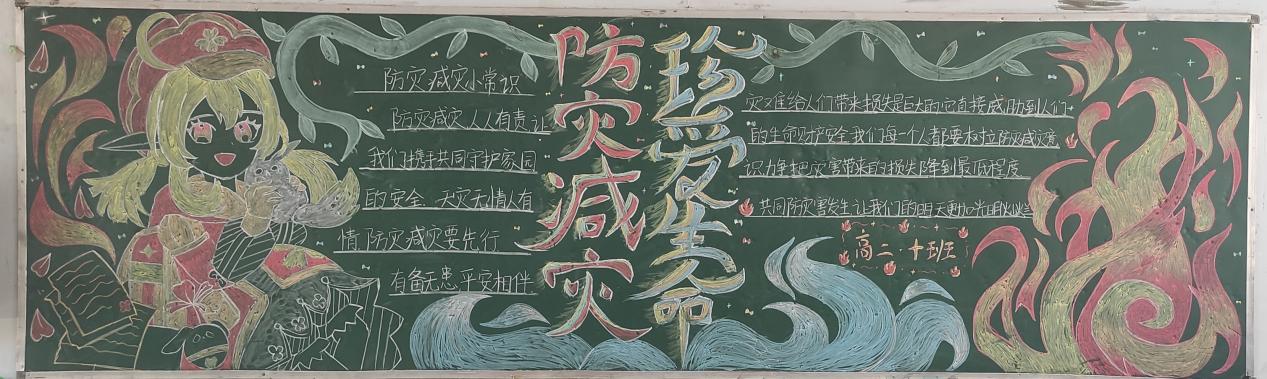 防灾减灾小常识
防灾减灾人人有责让
我们携手共同守护家园
的安全 天灾无情人有
情 防灾减灾要先行
有备无患 平安相伴
防灾减灾
珍爱生命
灾难给人们带来损失是巨大的它直接威胁到人们
的生命财产安全我们每一个人都要树立防灾减灾意
识力争把灾害带来的损失降到最低程度
共同防灾害发生让我们的明天更加光明灿烂
高二·十班